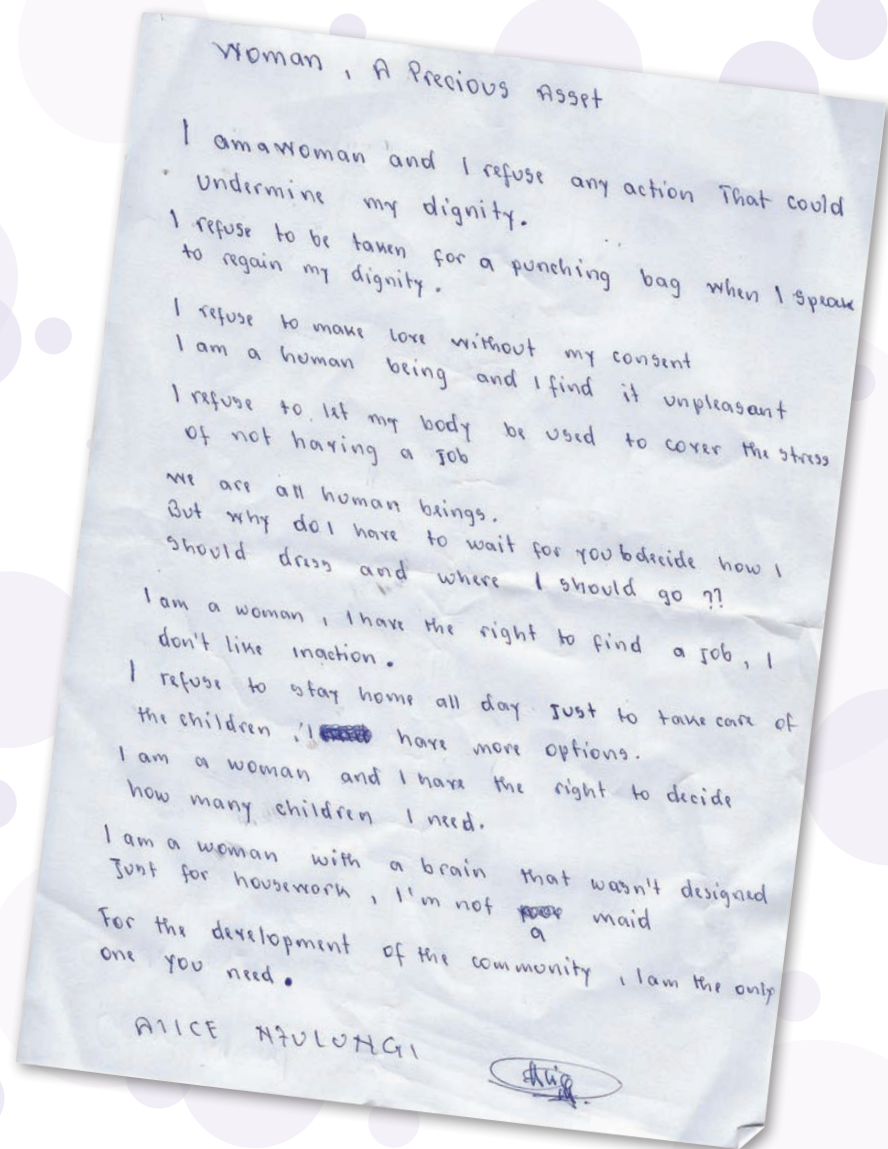 Woman, A Precious Asset
I am a woman and I refuse any action That could
undermine my dignity.
I refuse to be taken for a punching bag when I speak
to regain my dignity.
I refuse to make love without my consent
I am a human being and I find it unpleasant
I refuse to let my body be used to cover the stress
of not having a Job
We are all human beings.
But why do I have to wait for you to decide how I
should dress and where I should go ??
I am a woman, I have the right to find a Job, I
don't like inaction.
I refuse to stay home all day Just to take care of
the children, I have more options.
I am a woman and I have the right to decide
how many children I need.
I am a woman with a brain that wasn't designed
Just for housework, I'm not a maid
For the development of the community, I am the only
one you need.
ALICE